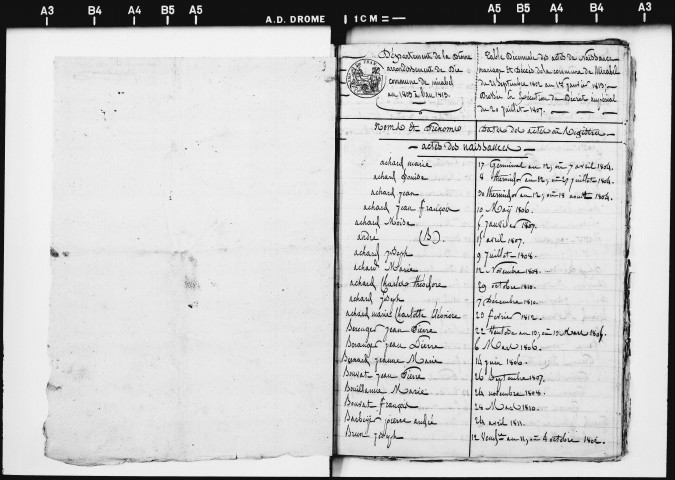 A3 B4 A4 B5 A5 A.D. DROME 1CM= A5 B5 A4 B4 A3
Département de la Drôme
arrondissement de Die
commune de mirabel
an 1803 à l'an 1813.
Table Décennale des actes de Naissance
mariage Et Décès de la commune de Mirabel
du Septembre 1802 au 1er janvier 1813;
Dressée en Exécution du Décret impérial
du 20 juillet 1807.
Noms Et Prénoms
Dates des actes au Registre
actes des naissances
achard marie 17 Germinal an 12, ou 7 avril 1804.
achard Thermidor an 12, ou juillet 1804.
achard jean 30 thermidor an 12, ou 18 aoust 1804.
achard jean françois 10 May 1806.
achard Moïse janvier 1807.
andré (B). avril 1807.
achard joseph 9 juillet 1808.
achard Marie 12 Novembre 1808.
achard Charles théodore 29 octobre 1810.
achard joseph 7 Décembre 1810.
achard marie Charlotte Eléonore 20 février 1812.
Berenger jean Pierre 22 Ventose an 13, ou 13 Mars
Beranger jean Pierre 6 Mars 1806.
jeanne Marie 14 juin 1806.
Bouvat jean Pierre 26 Septembre 1807.
Bouillanne Marie 24 novembre 1808.
Bouvat françois 24 Mars 1810.
pierre andré 24 avril 1811.
Brun joseph 12 an 11, ou 4 octobre 1802.